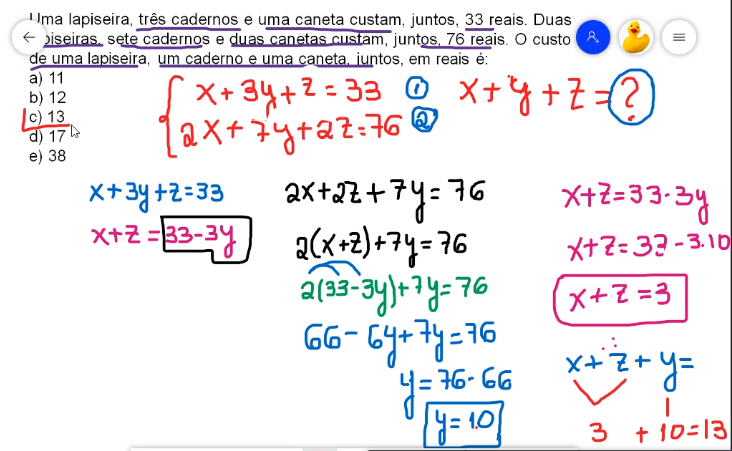 Uma lapiseira, três cadernos e uma caneta custam, juntos, 33 reais. Duas
piseiras, sete cadernos e duas canetas custam, juntos, 76 reais. O custo
de uma lapiseira, um caderno e uma caneta, juntos, em reais é:
a) 11
b) 12
c) 13
d) 17
e) 38
x+3y+z=33 1
2x+7y+2z=76 2
x+y+z=?
x+3y+z=33
x+z=33-3y
2x+2z+7y=76
2(x+z)+7y=76
2(33-3y)+7y=76
66-6y+7y=76
y=76-66
y=10
x+z=33-3y
x+z=33-3.10
x+z=3
x+z+y=
3 +10=13